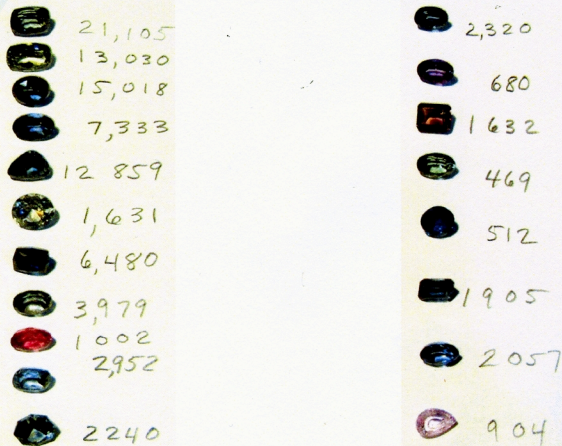 21,105
13,030
15,018
7,333
12 859
1,631
6,480
3,979
1002
2,952
2240
2,320
680
1632
469
512
1905
2057
904